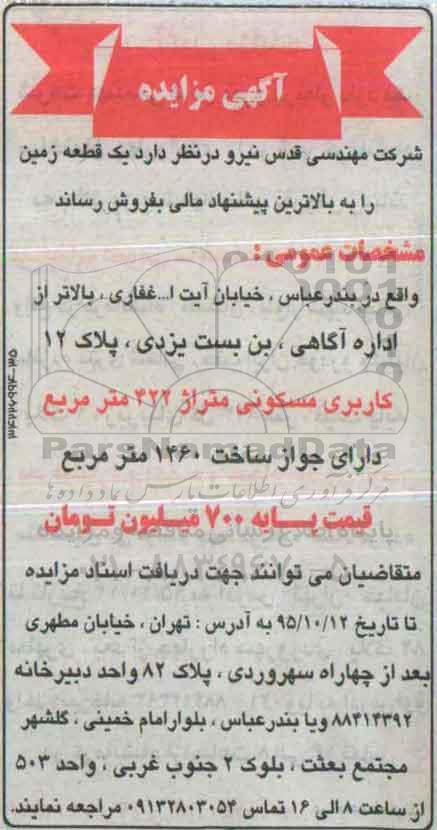 آگهی مزایده
شرکت مهندسی قدس نیرو درنظر دارد یک قطعه زمین
را به بالاترین پیشنهاد مالی بفروش رساند
مشخصات عمومی :
واقع در بندرعباس ، خیابان آیت ا...غفاری ، بالاتر از
اداره آگاهی ، بن بست یزدی ، پلاک ۱۲
کاربری مسکونی متراژ ۴۲۲ متر مربع
ParsNamadData
دارای جواز ساخت ۱۴۶۰ متر مربع
مرکز فرآوری اطلاعات پارس نماد داده ها
قیمت پــایه ۷۰۰ میلیون تـومان
متقاضیان می توانند جهت دریافت اسناد مزایده
تا تاریخ ۹۵/۱۰/۱۲ به آدرس : تهران ، خیابان مطهری
بعد از چهاراه سهروردی ، پلاک ۸۲ واحد دبیرخانه
۸۸۴۱۴۳۹۲ ویا بندرعباس ، بلوارامام خمینی ، گلشهر
مجتمع بعثت ، بلوک ۲ جنوب غربی ، واحد ۵۰۳
از ساعت ۸ الی ۱۶ تماس ۰۹۱۳۲۸۰۳۰۵۴ مراجعه نمایند.